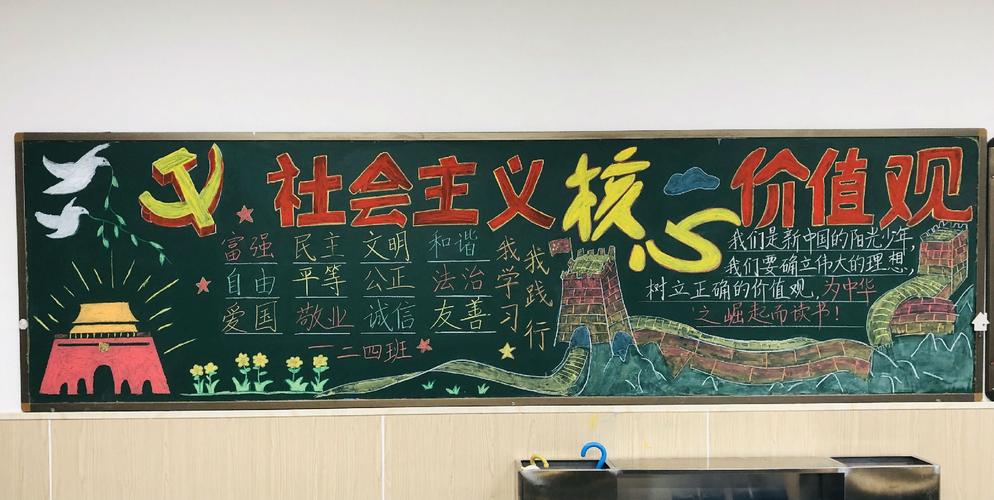 社会主义核心价值观
富强 民主 文明 和谐
自由 平等 公正 法治
爱国 敬业 诚信 友善
一二四班
我学习
我践行
我们是新中国的阳光少年,
我们要确立伟大的理想,
树立正确的价值观,为中华
之崛起而读书!